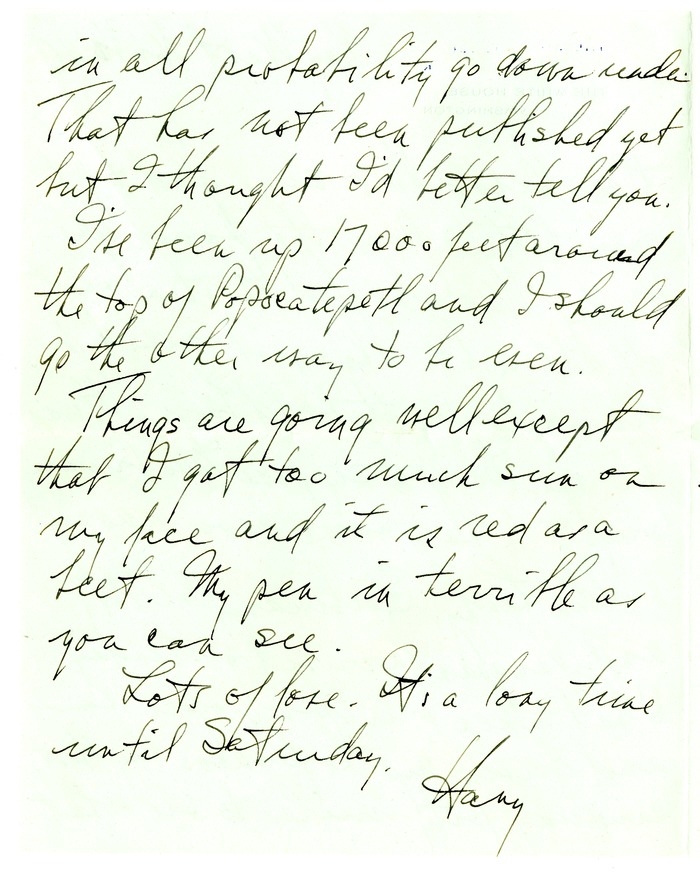 in all probability go down under.
That has not been published yet
but I thought I'd better tell you.
I've been up 17000 feet around
the top of Popocatepetl and I should
go the other way to be even.
Things are going well except
that I got too much sun on
my face and it is red as a
beet. My pen is terrible as
you can see.
Lots of love. It's a long time
until Saturday.
Harry